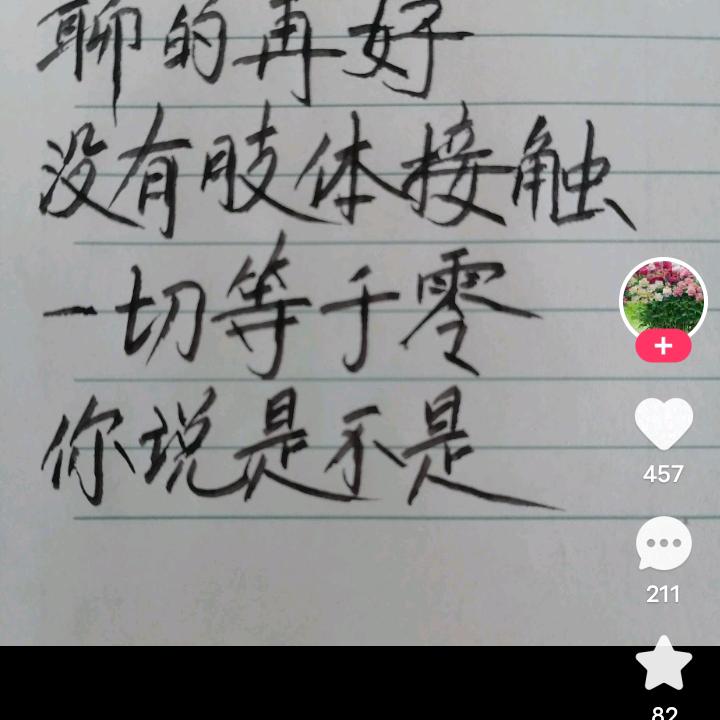 聊的再好
没有肢体接触
一切等于零
你说是不是
457
211
82